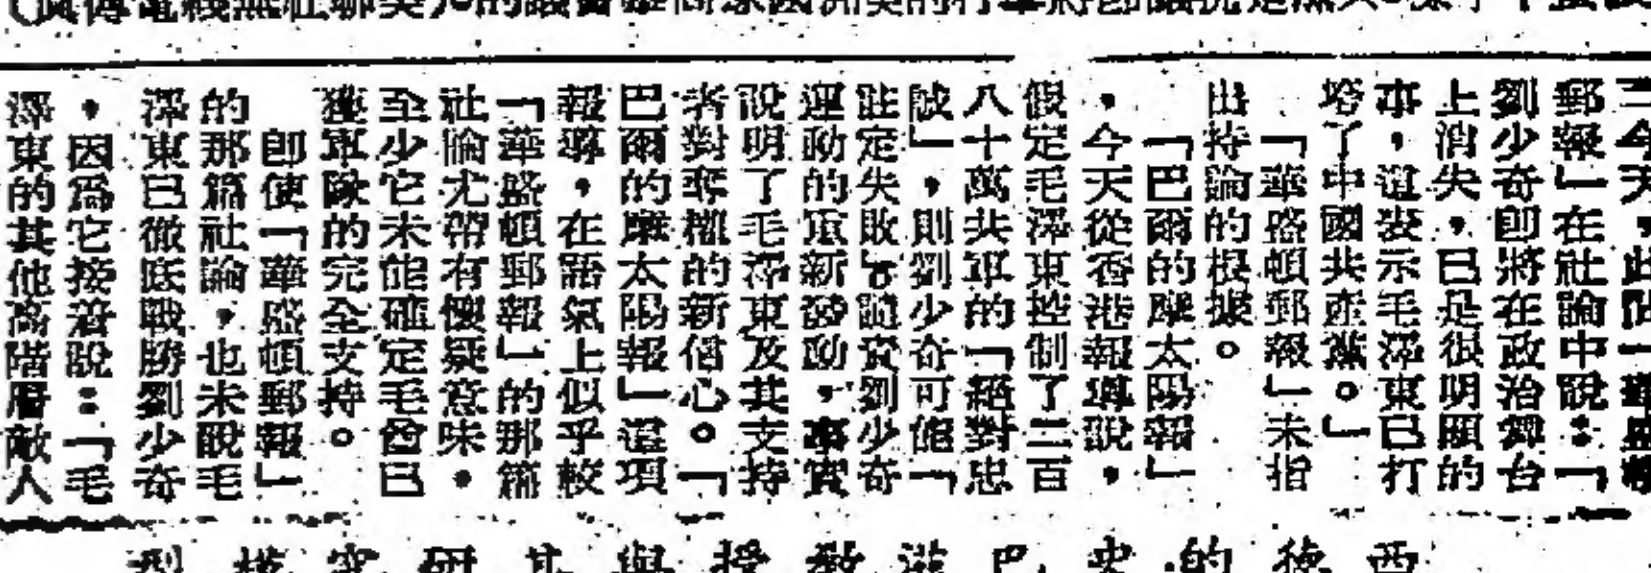 郵報」在社論中說：「
劉少奇卽將在政治舞台
上消失，已是很明顯的
事，這表示毛澤東已打
垮了中國共產黨。」
「華盛頓郵報」未指
出持論的根據。
「巴爾的摩太陽報」
，今天從香港報導說，
假定毛澤東控制了二百
八十萬共軍的「絕對忠
誠」，則劉少奇可能「
註定失敗」。隨責劉少奇
運動的重新發動，事實
說明了毛澤東及其支持
者對奪權的新信心。「
巴爾的摩太陽報」這項
報導，在語氣上似乎較
「華盛頓郵報」的那篇
社論尤帶有懷疑意味，
至少它未能確定毛酋已
獲軍隊的完全支持。
卽使「華盛頓郵報」
的那篇社論，也未說毛
澤東已徹底戰勝劉少奇
，因爲它接着說：「毛
澤東的其他高階層敵人